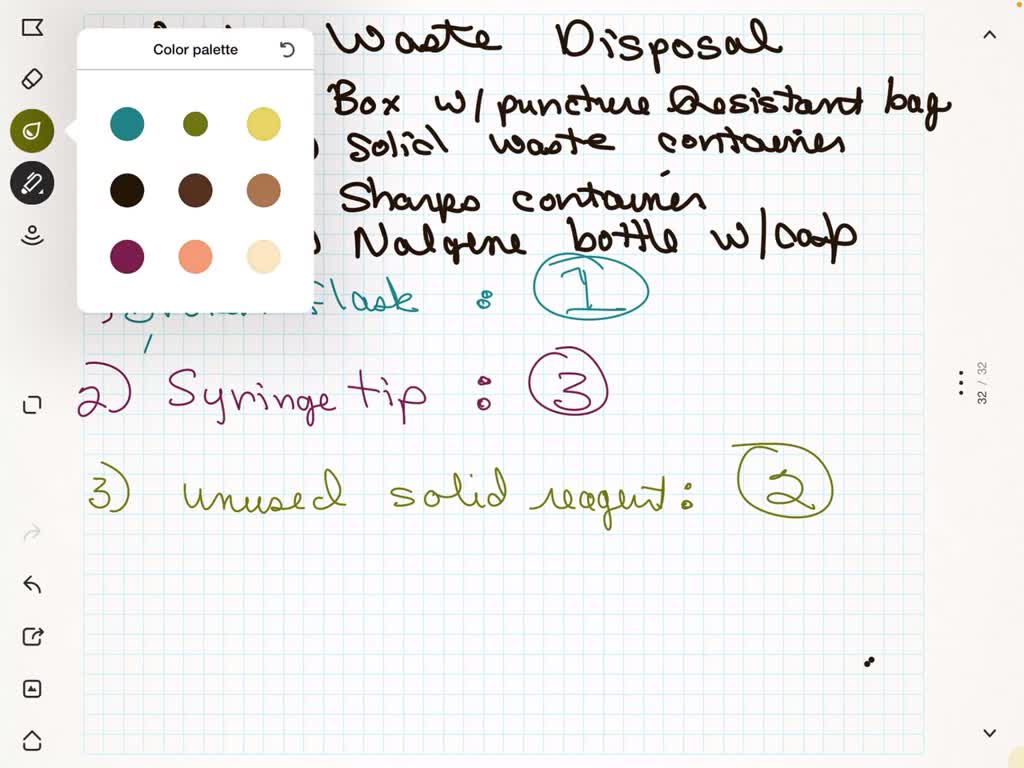 Color palette
Waste Disposal
Box w/ puncture Resistant bag
) Solid waste container
Sharps container
) Nalgene bottle w/ cap
Flask : 1
2) Syringe tip : 3
3) unused solid reagent : 2
32 / 32